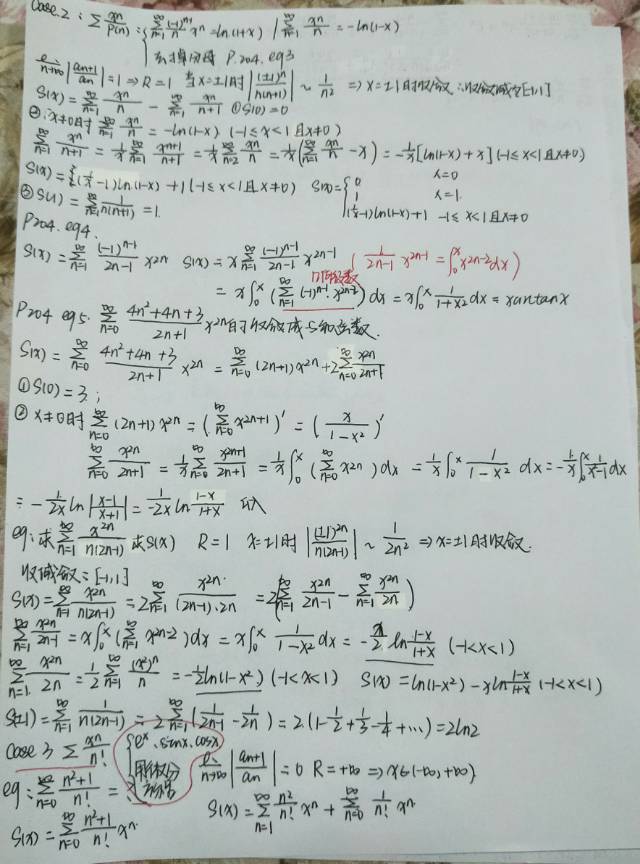 Case 2: Σ xⁿ/P(n): { Σ_{n=1}^∞ (-1)^{n-1}/n xⁿ = ln(1+x) / Σ_{n=1}^∞ xⁿ/n = -ln(1-x)
P204. eg3
lim_{n→∞} |a_{n+1}/a_n| = 1 ⇒ R=1 当x=±1时 |(±1)ⁿ/n(n+1)| ~ 1/n² ⇒ x=±1时收敛 ∴收敛域[-1,1]
S(x) = Σ_{n=1}^∞ xⁿ/n - Σ_{n=1}^∞ xⁿ/(n+1) ① S(0)=0
②: x≠0时 Σ_{n=1}^∞ xⁿ/n = -ln(1-x) (-1≤x<1且x≠0)
Σ_{n=1}^∞ xⁿ/(n+1) = 1/x Σ_{n=1}^∞ x^{n+1}/(n+1) = 1/x Σ_{n=2}^∞ xⁿ/n = 1/x (Σ_{n=1}^∞ xⁿ/n - x) = -1/x [ln(1-x)+x] (-1≤x<1且x≠0)
S(x) = (1/x -1)ln(1-x)+1 (-1≤x<1且x≠0) S(x) = { 0 x=0
③ S(1) = Σ_{n=1}^∞ 1/n(n+1) = 1. 1 x=1.
(1/x -1)ln(1-x)+1 -1≤x<1且x≠0
P204. eg4.
S(x) = Σ_{n=1}^∞ (-1)^{n-1}/(2n-1) x^{2n} S(x) = x Σ_{n=1}^∞ (-1)^{n-1}/(2n-1) x^{2n-1} (1/(2n-1) x^{2n-1} = ∫₀ˣ x^{2n-2}dx)
几何级数
= x∫₀ˣ (Σ_{n=1}^∞ (-1)^{n-1}·x^{2n-2}) dx = x∫₀ˣ 1/(1+x²) dx = xarctanx
P204 eg5. Σ_{n=0}^∞ (4n²+4n+3)/(2n+1) x^{2n}的收敛域与和函数.
S(x) = Σ_{n=0}^∞ (4n²+4n+3)/(2n+1) x^{2n} = Σ_{n=0}^∞ (2n+1)x^{2n} + 2Σ_{n=0}^∞ x^{2n}/(2n+1)
① S(0)=3;
② x≠0时 Σ_{n=0}^∞ (2n+1)x^{2n} = (Σ_{n=0}^∞ x^{2n+1})' = (x/(1-x²))'
Σ_{n=0}^∞ x^{2n}/(2n+1) = 1/x Σ_{n=0}^∞ x^{2n+1}/(2n+1) = 1/x ∫₀ˣ (Σ_{n=0}^∞ x^{2n}) dx = 1/x ∫₀ˣ 1/(1-x²) dx = -1/x ∫₀ˣ 1/(x²-1) dx
= -1/2x ln|(x-1)/(x+1)| = 1/-2x ln (1-x)/(1+x)
eg: 求Σ_{n=1}^∞ x^{2n}/n(2n-1) 求S(x) R=1 x=±1时 |(±1)^{2n}/n(2n-1)| ~ 1/2n² ⇒ x=±1时收敛.
收敛域: [-1,1]
S(x) = Σ_{n=1}^∞ x^{2n}/n(2n-1) = 2Σ_{n=1}^∞ x^{2n}/(2n-1)·2n = 2(Σ_{n=1}^∞ x^{2n}/(2n-1) - Σ_{n=1}^∞ x^{2n}/2n)
Σ_{n=1}^∞ x^{2n}/(2n-1) = x∫₀ˣ (Σ_{n=1}^∞ x^{2n-2}) dx = x∫₀ˣ 1/(1-x²) dx = -x/2 ln (1-x)/(1+x) (-1<x<1)
Σ_{n=1}^∞ x^{2n}/2n = 1/2 Σ_{n=1}^∞ (x²)ⁿ/n = -1/2 ln(1-x²) (-1<x<1) S(x) = ln(1-x²) - xln (1-x)/(1+x) (-1<x<1)
S(±1) = Σ_{n=1}^∞ 1/n(2n-1) = 2Σ_{n=1}^∞ (1/(2n-1) - 1/2n) = 2(1-1/2+1/3-1/4+⋯) = 2ln2
Case 3 Σ xⁿ/n! { eˣ. sinx. cosx
lim_{n→∞} |a_{n+1}/a_n| = 0 R=+∞ ⇒ x∈(-∞,+∞)
eg: Σ_{n=0}^∞ (n²+1)/n! = ?
S(x) = Σ_{n=0}^∞ (n²+1)/n! xⁿ. S(x) = Σ_{n=1}^∞ n²/n! xⁿ + Σ_{n=0}^∞ 1/n! xⁿ